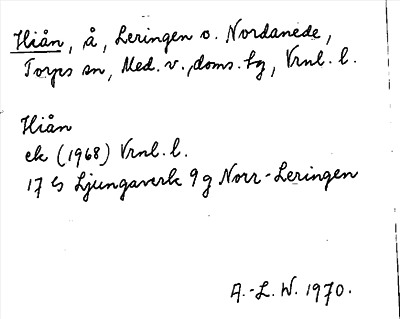 Hiån, å, Leringen o. Nordanede,
Torps sn, Med. v., doms. hg, Vrnl. l.
Hiån
ek (1968) Vrnl. l.
17 G Ljungaverk 9 g Norr-Leringen
A.-L. W. 1970.